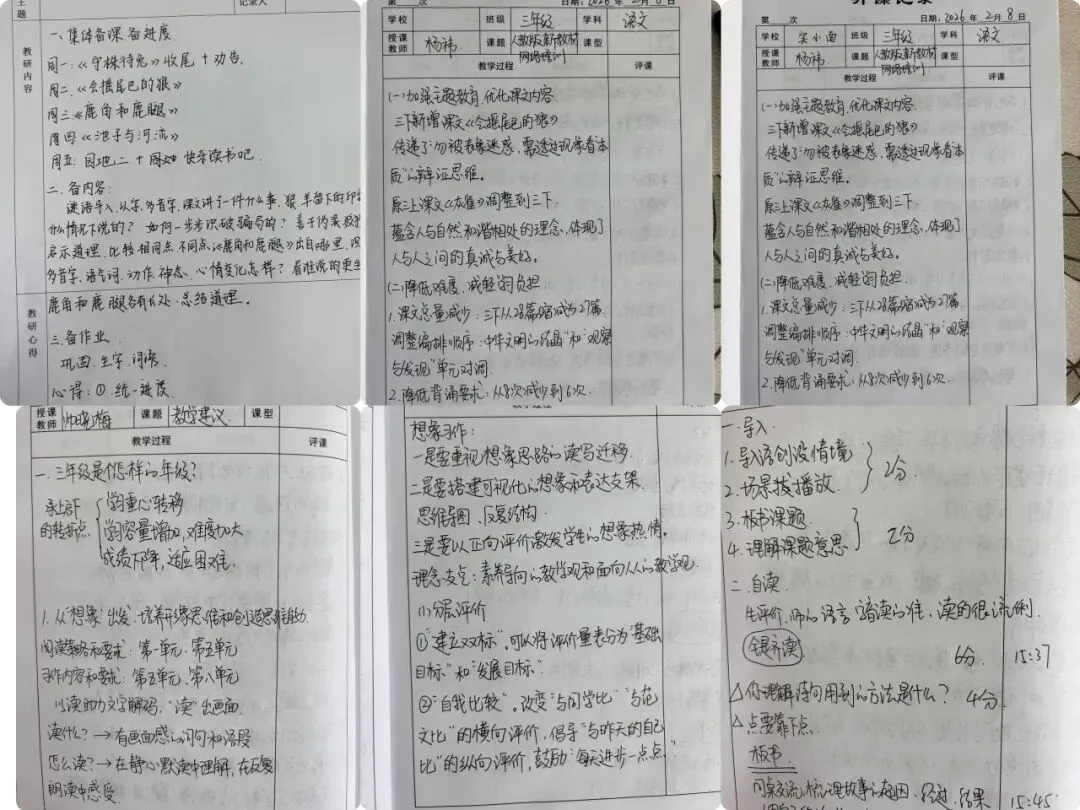 主题
记录人
教研内容
一、集体备课 备进度
周一:《守株待兔》收尾+劝告。
周二:《会摇尾巴的狼》
周三:《鹿角和鹿腿》
周四:《池子与河流》
周五:园地二+ 快乐读书吧.
二、备内容:
谜语导入,认字,多音字,课文讲了一件什么事,狼、羊留下的印
什么情况下说的?如何一步步识破骗局的?善于伪装
启示道理,比较相同点,不同点《鹿角和鹿腿》出自哪里,
多音字,语气词,动作,神态、心情变化怎样?看谁说的更生
鹿角和鹿腿各有长处.总结道理。
教研心得
三、备作业
巩固、生字、词语
心得:① 统一进度
第 次
2026 年 2 月 8 日
学校
班级
三年级
学科
语文
授课教师
杨祎
课题
人教版新教材网络培训
课型
教学过程
评课
(一)加强主题教育,优化课文内容.
三下新增课文《会摇尾巴的狼》
传递了:勿被表象迷惑,需透过现象看本
质"的辩证思维。
原三上课文《灰雀》调整到三下.
蕴含人与自然和谐相处的理念,体现了
人与人之间的真诚与美好。
(二)降低难度、减轻学习负担.
1.课文总量减少:三下从28篇缩减为27篇,
调整编排顺序:"中华文明的结晶"和"观察
与发现"单元对调.
2.降低背诵要求:从8次减少到6次.
听课记录
第 次
日期:2026 年 2 月 8 日
学校
班级
三年级
学科
语文
授课教师
杨祎
课题
人教版新教材网络培训
课型
教学过程
评课
(一)加强主题教育,优化课文内容.
三下新增课文《会摇尾巴的狼》
传递了:勿被表象迷惑,需透过现象看本
质"的辩证思维。
原三上课文《灰雀》调整到三下.
蕴含人与自然和谐相处的理念,体现了
人与人之间的真诚与美好。
(二)降低难度、减轻学习负担.
1.课文总量减少:三下从28篇缩减为27篇,
调整编排顺序:"中华文明的结晶"和"观察
与发现"单元对调.
2.降低背诵要求:从8次减少到6次.
授课教师
帅晓梅
课题
教学建议
课型
教学过程
评课
一、三年级是怎样的年级?
承上启下的转折点
学习重心转移
学习容量增加,难度加大
成绩下降,适应困难.
1.从"想象"出发,培养形象思维和创造思维能力.
阅读策略和要求:第一单元、第五单元
习作内容和要求:第五单元、第八单元
以读助力文字解码,"读"出画面.
读什么?→有画面感的词句和语段
怎么读?→在静心默读中理解,在反复
朗读中感受
想象习作:
一是要重视想象思路的读写迁移.
二是要搭建可视化的想象和表达支架.
思维导图、反复结构
三是要以正向评价激发学生的想象热情.
理念支点:素养导向的教学观和面向人人的教学观.
(1)分层评价
①"建立双标",可以将评价量表分为"基础
目标"和"发展目标".
②"自我比较".改变"与同学比""与范
文比"的横向评价,倡导"与昨天的自己
比"的纵向评价,鼓励"每天进步一点点".
一.导入
1.导语创设情境
2.场景技播放.
2分
3.板书课题.
4.理解课题意思
2分
二.自读.
生评价,师的语言"踏读的准,读的很流利.
6分.
15:37
△你理解词句用到的方法是什么?
4分
△点要靠下点
板书
同桌交流,梳理故事的起因、经过、结果
15:45